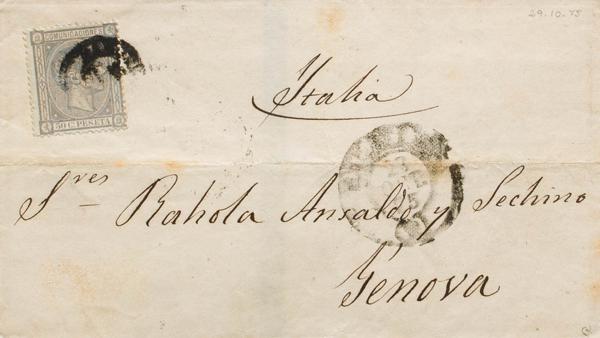 29.10.75
COMUNICACIONES
50 Cs PESETA
Italia
Sres Rahola Ansaldo y Sechino
Genova